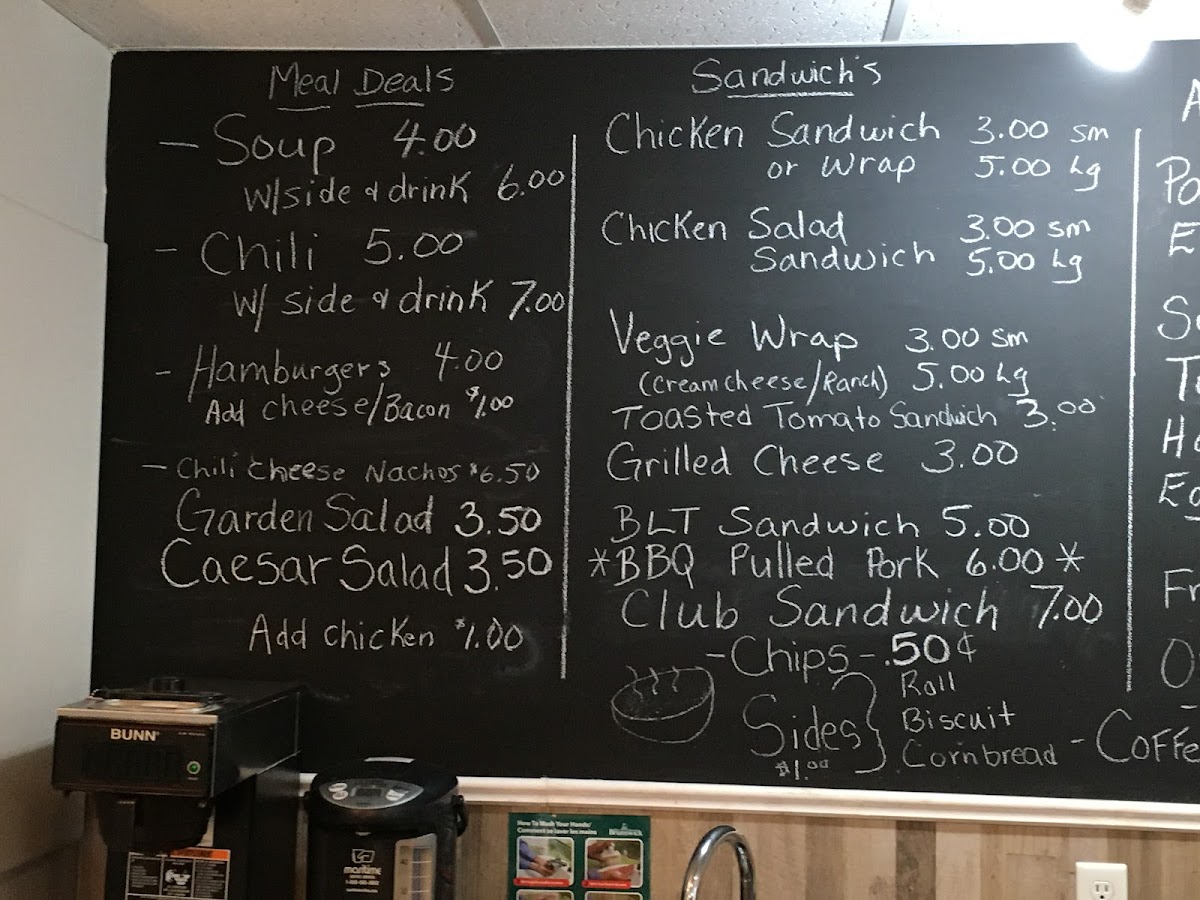 Meal Deals
- Soup 4.00
w/side & drink 6.00
- Chili 5.00
w/ side & drink 7.00
- Hamburgers 4.00
Add cheese/Bacon $1.00
- Chili cheese Nachos $6.50
Garden Salad 3.50
Caesar Salad 3.50
Add chicken $1.00
Sandwich's
Chicken Sandwich 3.00 sm
or Wrap 5.00 Lg
Chicken Salad 3.00 sm
Sandwich 5.00 Lg
Veggie Wrap 3.00 sm
(Creamcheese/Ranch) 5.00 Lg
Toasted Tomato Sandwich 3.00
Grilled Cheese 3.00
BLT Sandwich 5.00
*BBQ Pulled Pork 6.00*
Club Sandwich 7.00
-Chips- .50¢
Sides
$1.00
Roll
Biscuit
Cornbread
- Coffe
BUNN
maritime
How To Wash Your Hands/
Comment se laver les mains
Brunswick